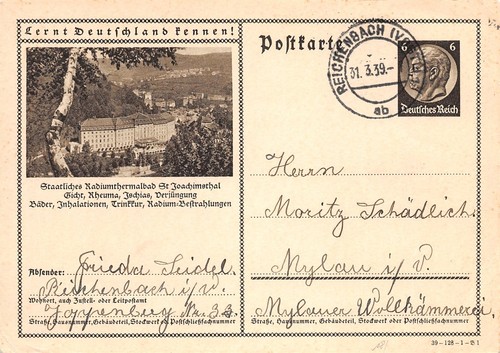 Lernt Deutschland kennen!
Staatliches Radiumthermalbad St Joachimsthal
Gicht, Rheuma, Ischias, Verjüngung
Bäder, Inhalationen, Trinkkur, Radium-Bestrahlungen
Absender: Frieda Seidel.
Reichenbach i/V.
Wohnort, auch Zustell- oder Leitpostamt
Nr. 33.
Straße, Hausnummer, Gebäudeteil, Stockwerk od. Postschließfachnummer
Postkarte
REICHENBACH (VOGTL)
31.3.39.-
ab
6 6
Deutsches Reich
Herrn
Moritz Schädlich.
Mylau i/V.
Mylauer Wollkämmerei.
Straße, Hausnummer, Gebäudeteil, Stockwerk oder Postschließfachnummer
39-128-1-B1